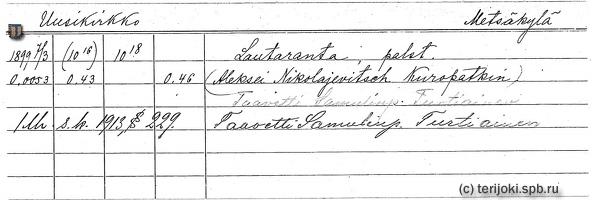 Uusikirkko Metsäkylä
1899 7/3 (10 16) 10 18 Lautaranta, palst.
0,0053 0.43 0.46 (Aleksei Nikolajevitsch Kuropatkin)
Taavetti Samulinp. Turtiainen
1 Uh s.k. 1913, § 229. Taavetti Samulinp. Turtiainen
(c) terijoki.spb.ru